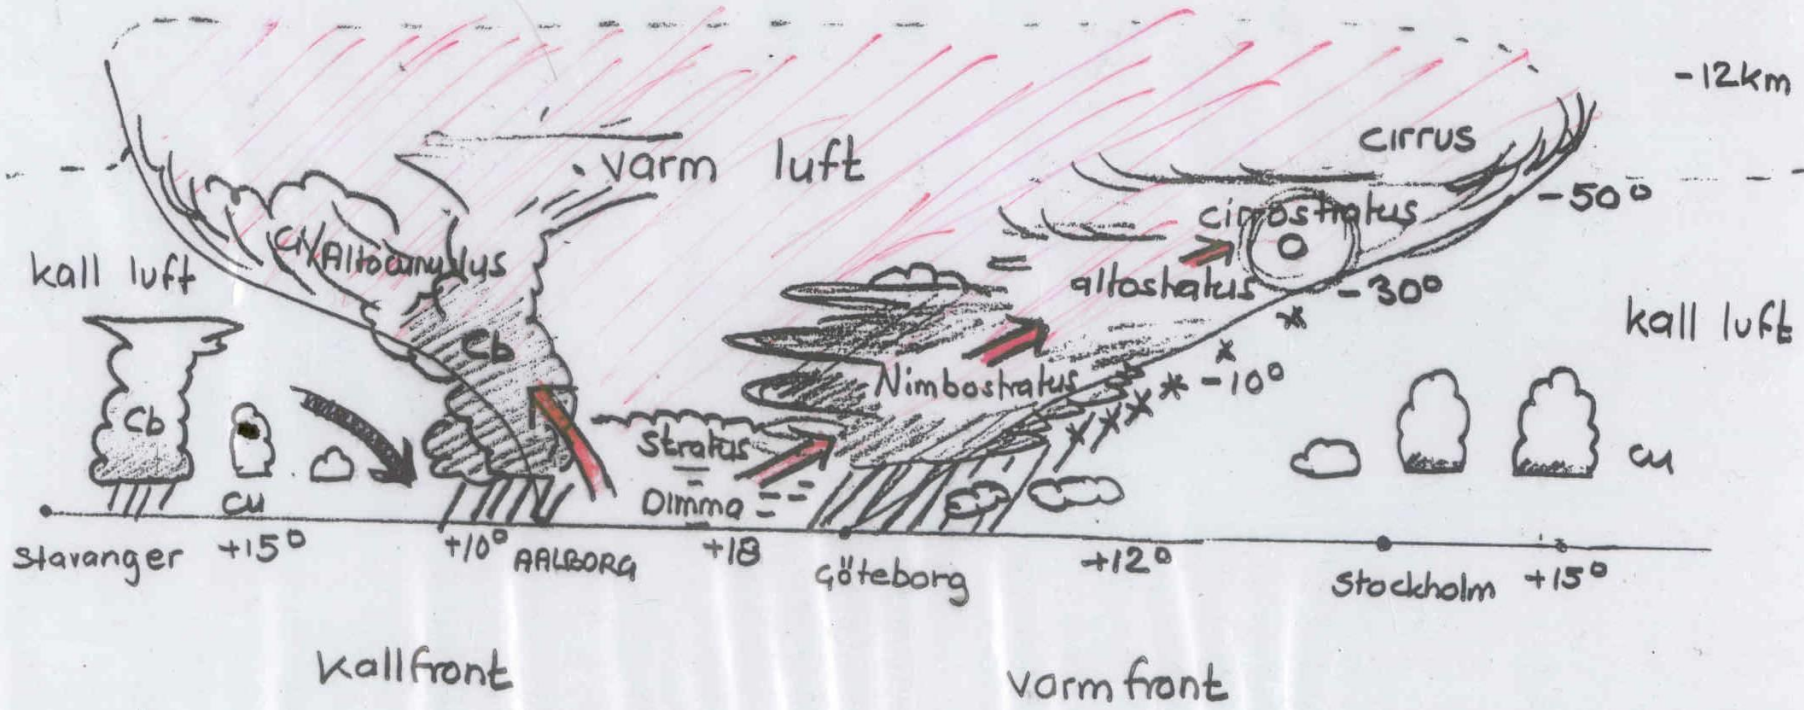 -12km
cirrus
varm luft
-50°
cirrostratus
Altocumulus
kall luft
altostratus
-30°
kall luft
Cb
Nimbostratus
-10°
Cb
Stratus
cu
cu
Dimma
Stavanger
+15°
+10°
AALBORG
+18
Göteborg
+12°
Stockholm
+15°
kallfront
varmfront